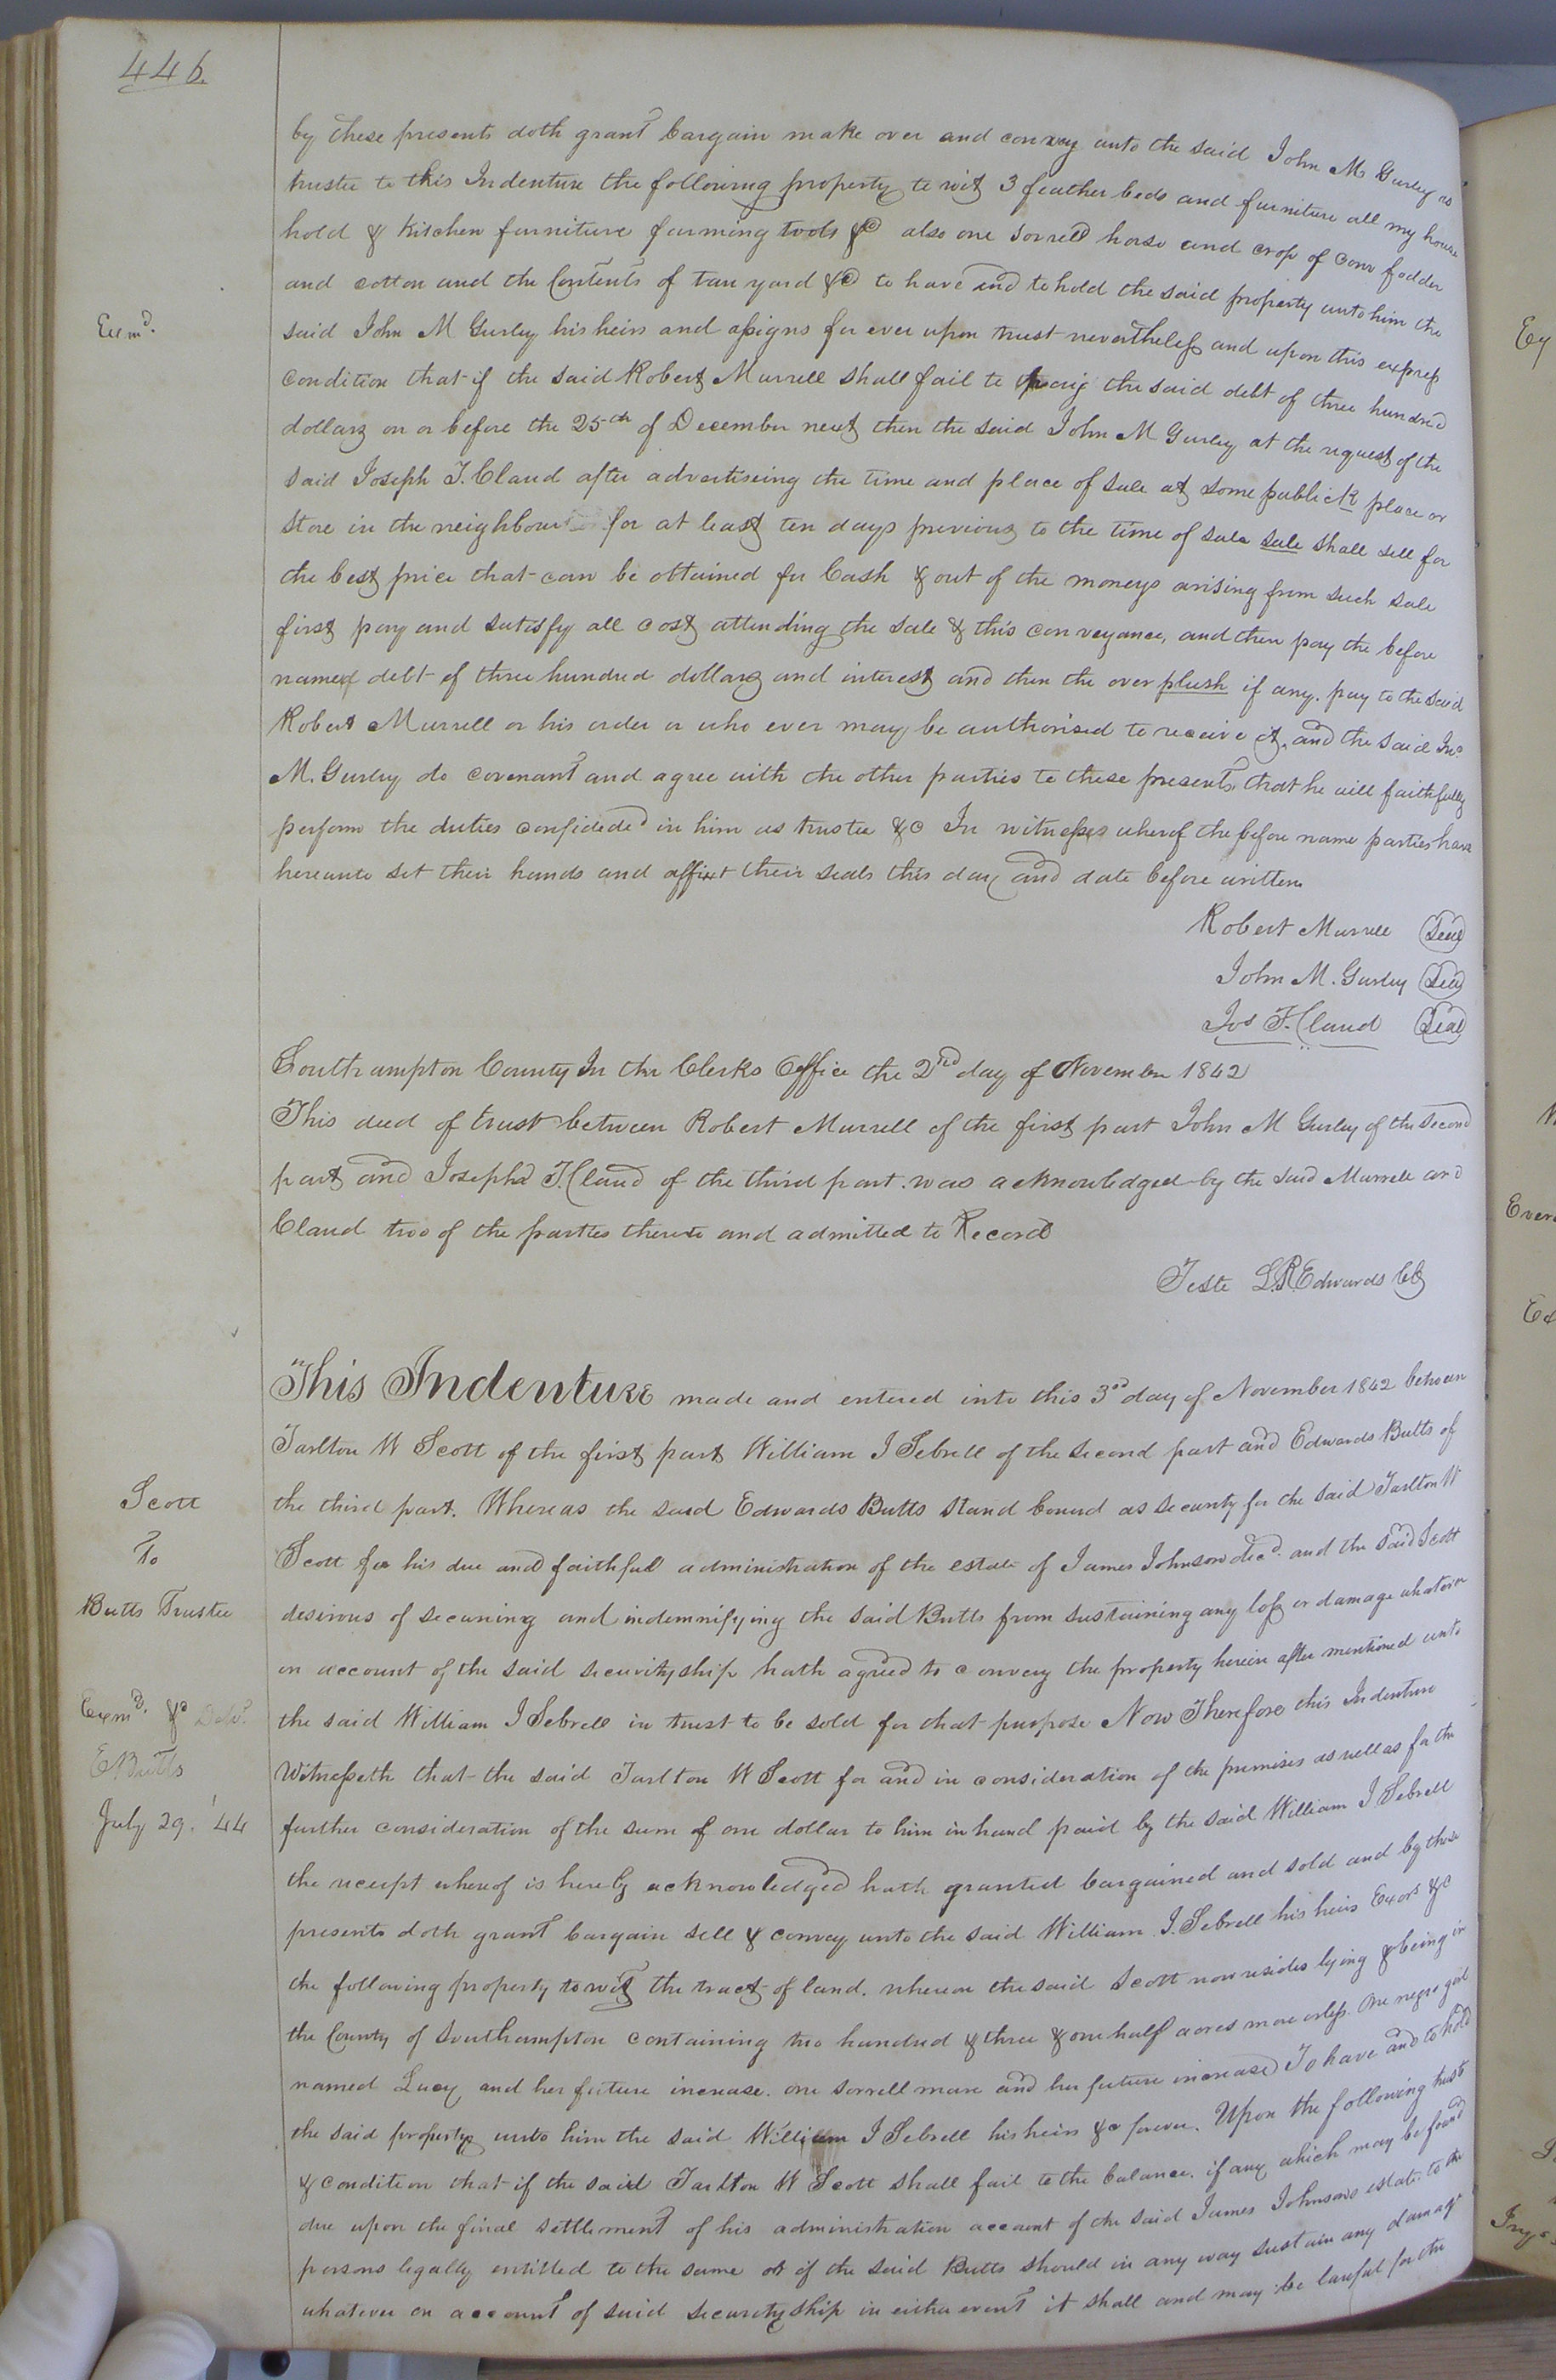 446.
by these presents doth grant bargain make over and convey unto the said John M. Gurley as
trustee to this Indenture the following property to wit 3 feather beds and furniture all my house
hold & Kitchen furniture farming tools &c also one sorrell horse and crop of corn fodder
and cotton and the Contents of tan yard &c to have and to hold the said property unto him the
Exmd.
said John M Gurley his heirs and assigns for ever upon trust nevertheless and upon this express
condition that if the said Robert Murrell shall fail to pay the said debt of three hundred
dollars on or before the 25th of December next then the said John M Gurley at the request of the
said Joseph T. Claud after advertiseing the time and place of sale at some publick place or
store in the neighbour for at least ten days previous to the time of sale sale shall sell for
the best price that can be obtained for Cash & out of the moneys arising from such sale
first pay and satisfy all cost attending the sale & this conveyance, and then pay the before
named debt of three hundred dollars and interest and then the over plush if any. pay to the said
Robert Murrell or his order or who ever may be authorised to receive it, and the said Jno.
M. Gurley do covenant and agree with the other parties to these presents, that he will faithfully
perform the duties confideded in him as trustee &c In witness wherof the before name parties have
hereunto set their hands and affixt their seals this day and date before written
Robert Murrell Seal
John M. Gurley Seal
Jos T. Claud Seal
Southampton County In the Clerks Office the 2nd day of November 1842
This deed of trust between Robert Murrell of the first part John M Gurley of the second
part and Joseph T. Claud of the third part. was acknowledged by the said Murrell and
Claud two of the parties thereto and admitted to Record
Teste L.R. Edwards Clk
This Indenture made and entered into this 3rd day of November 1842 between
Tarlton W Scott of the first part William J Sebrell of the second part and Edwards Butts of
Scott
the third part. Whereas the said Edwards Butts stand bound as security for the said Tarlton W
To
Scott for his due and faithful administration of the estate of James Johnson decd. and the said Scott
Butts Trustee
desirous of securing and indemnifying the said Butts from sustaining any loss or damage whatever
on account of the said securityship hath agreed to convey the property herein after mentioned unto
Exmd. &c Deld.
the said William J Sebrell in trust to be sold for that purpose Now Therefore this Indenture
E Butts
Witnesseth that the said Tarlton W Scott for and in consideration of the premises as well as for the
July 29. '44
further consideration of the sum of one dollar to him in hand paid by the said William J Sebrell
the receipt whereof is hereby acknowledged hath granted bargained and sold and by these
presents doth grant bargain sell & convey unto the said William J. Sebrell his heirs Exors &c
the following property to wit the tract of land. whereon the said Scott now resides lying & being in
the County of Southampton containing two hundred & three & one half acres more or less. One negro girl
named Lucy and her future increase. one sorrell mare and her future increase To have and to hold
the said property unto him the said William J Sebrell his heirs &c forever. Upon the following trust
& condition that if the said Tarlton W Scott shall fail to the balance. if any which may be found
due upon the final settlement of his administration account of the said James Johnsons estate to the
persons legally entitled to the same or if the said Butts should in any way sustain any damage
whatever on account of said securityship in either event it shall and may be lawful for the